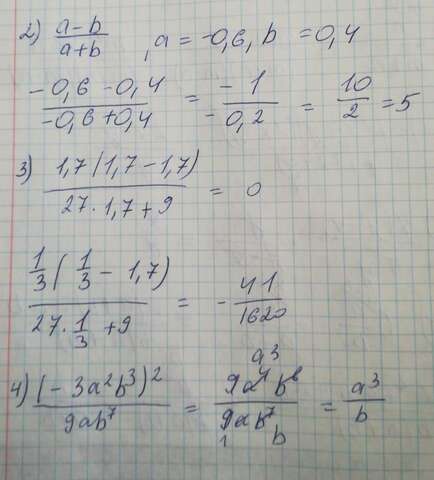 2) (a-b)/(a+b), a = -0,6, b = 0,4
(-0,6 -0,4)/(-0,6+0,4) = (-1)/(-0,2) = 10/2 = 5
3) (1,7(1,7-1,7))/(27·1,7+9) = 0
(1/3(1/3 - 1,7))/(27·1/3+9) = -41/1620
a³
4) (-3a²b³)²/(9ab⁷) = (9a⁴b⁶)/(9ab⁷) = a³/b
1 b